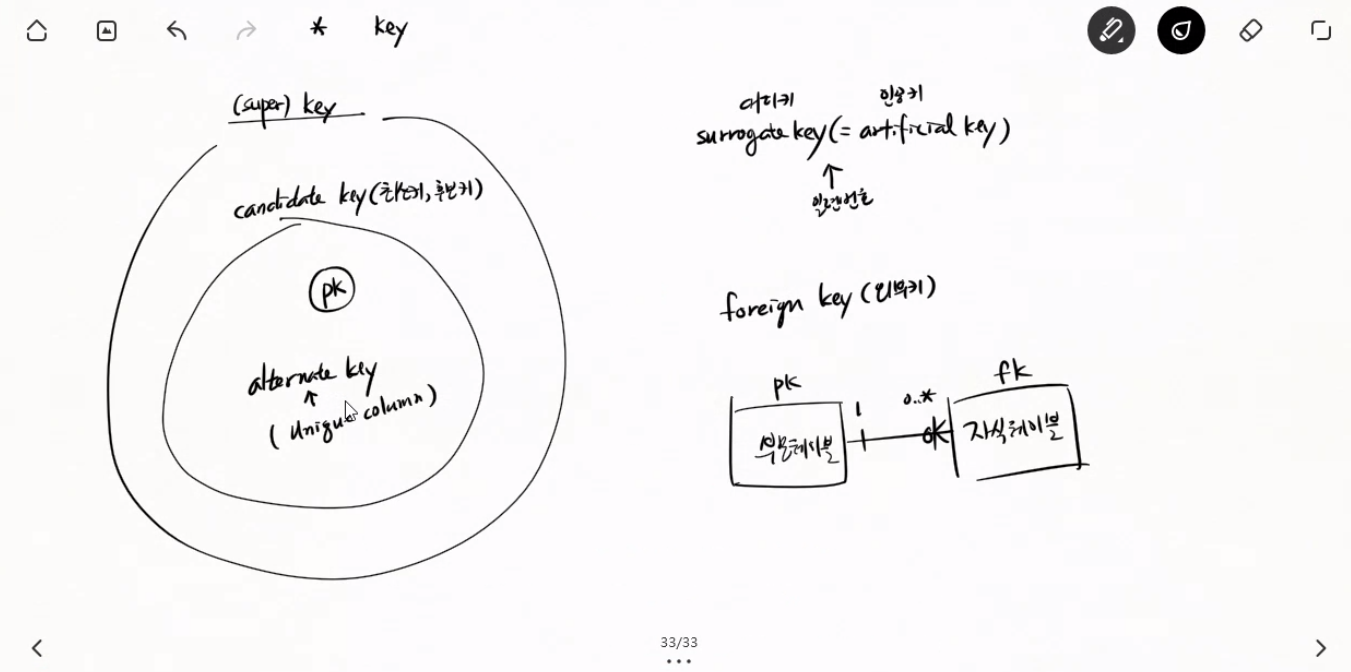 * key
(super) key
candidate key (최소키, 후보키)
pk
alternate key
↑
(unique column)
대리키 인공키
surrogate key (= artificial key)
↑
일련번호
foreign key (외부키)
pk
fk
1
0..*
부모테이블
자식테이블
33/33